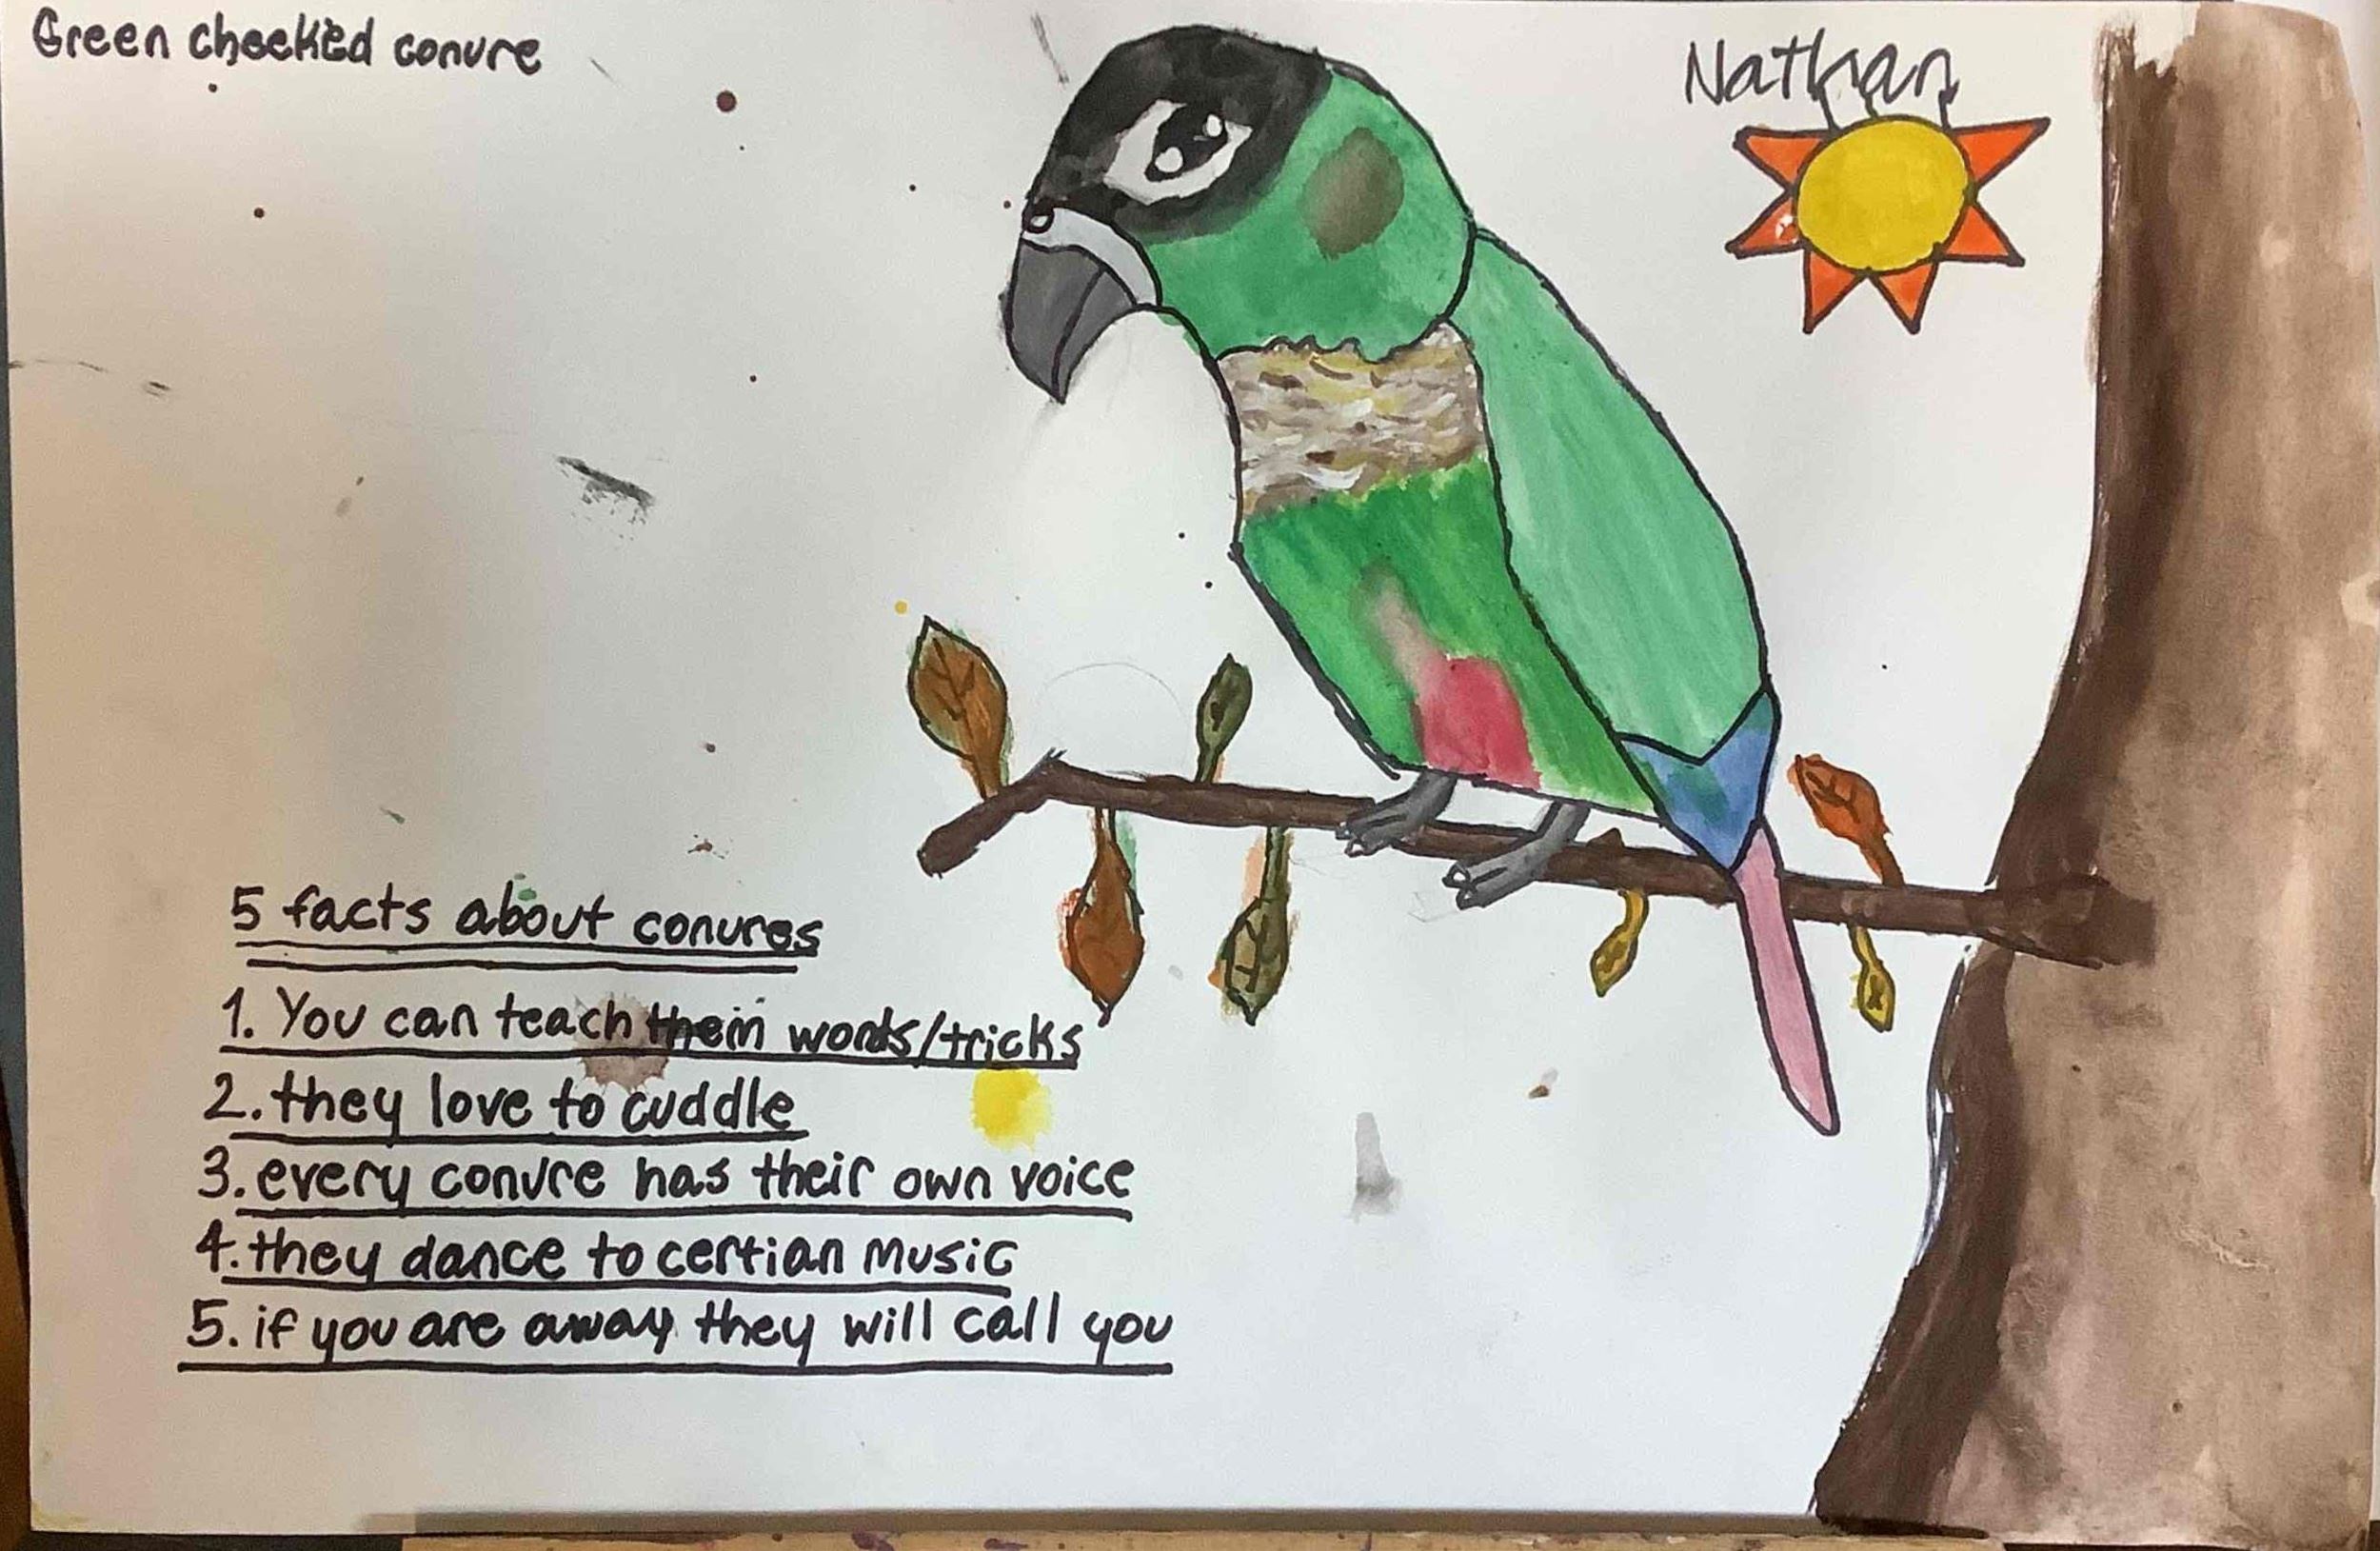 Green cheeked conure
Nathan
5 facts about conures
1. You can teach them words/tricks
2. they love to cuddle
3. every conure has their own voice
4. they dance to certian music
5. if you are away they will call you